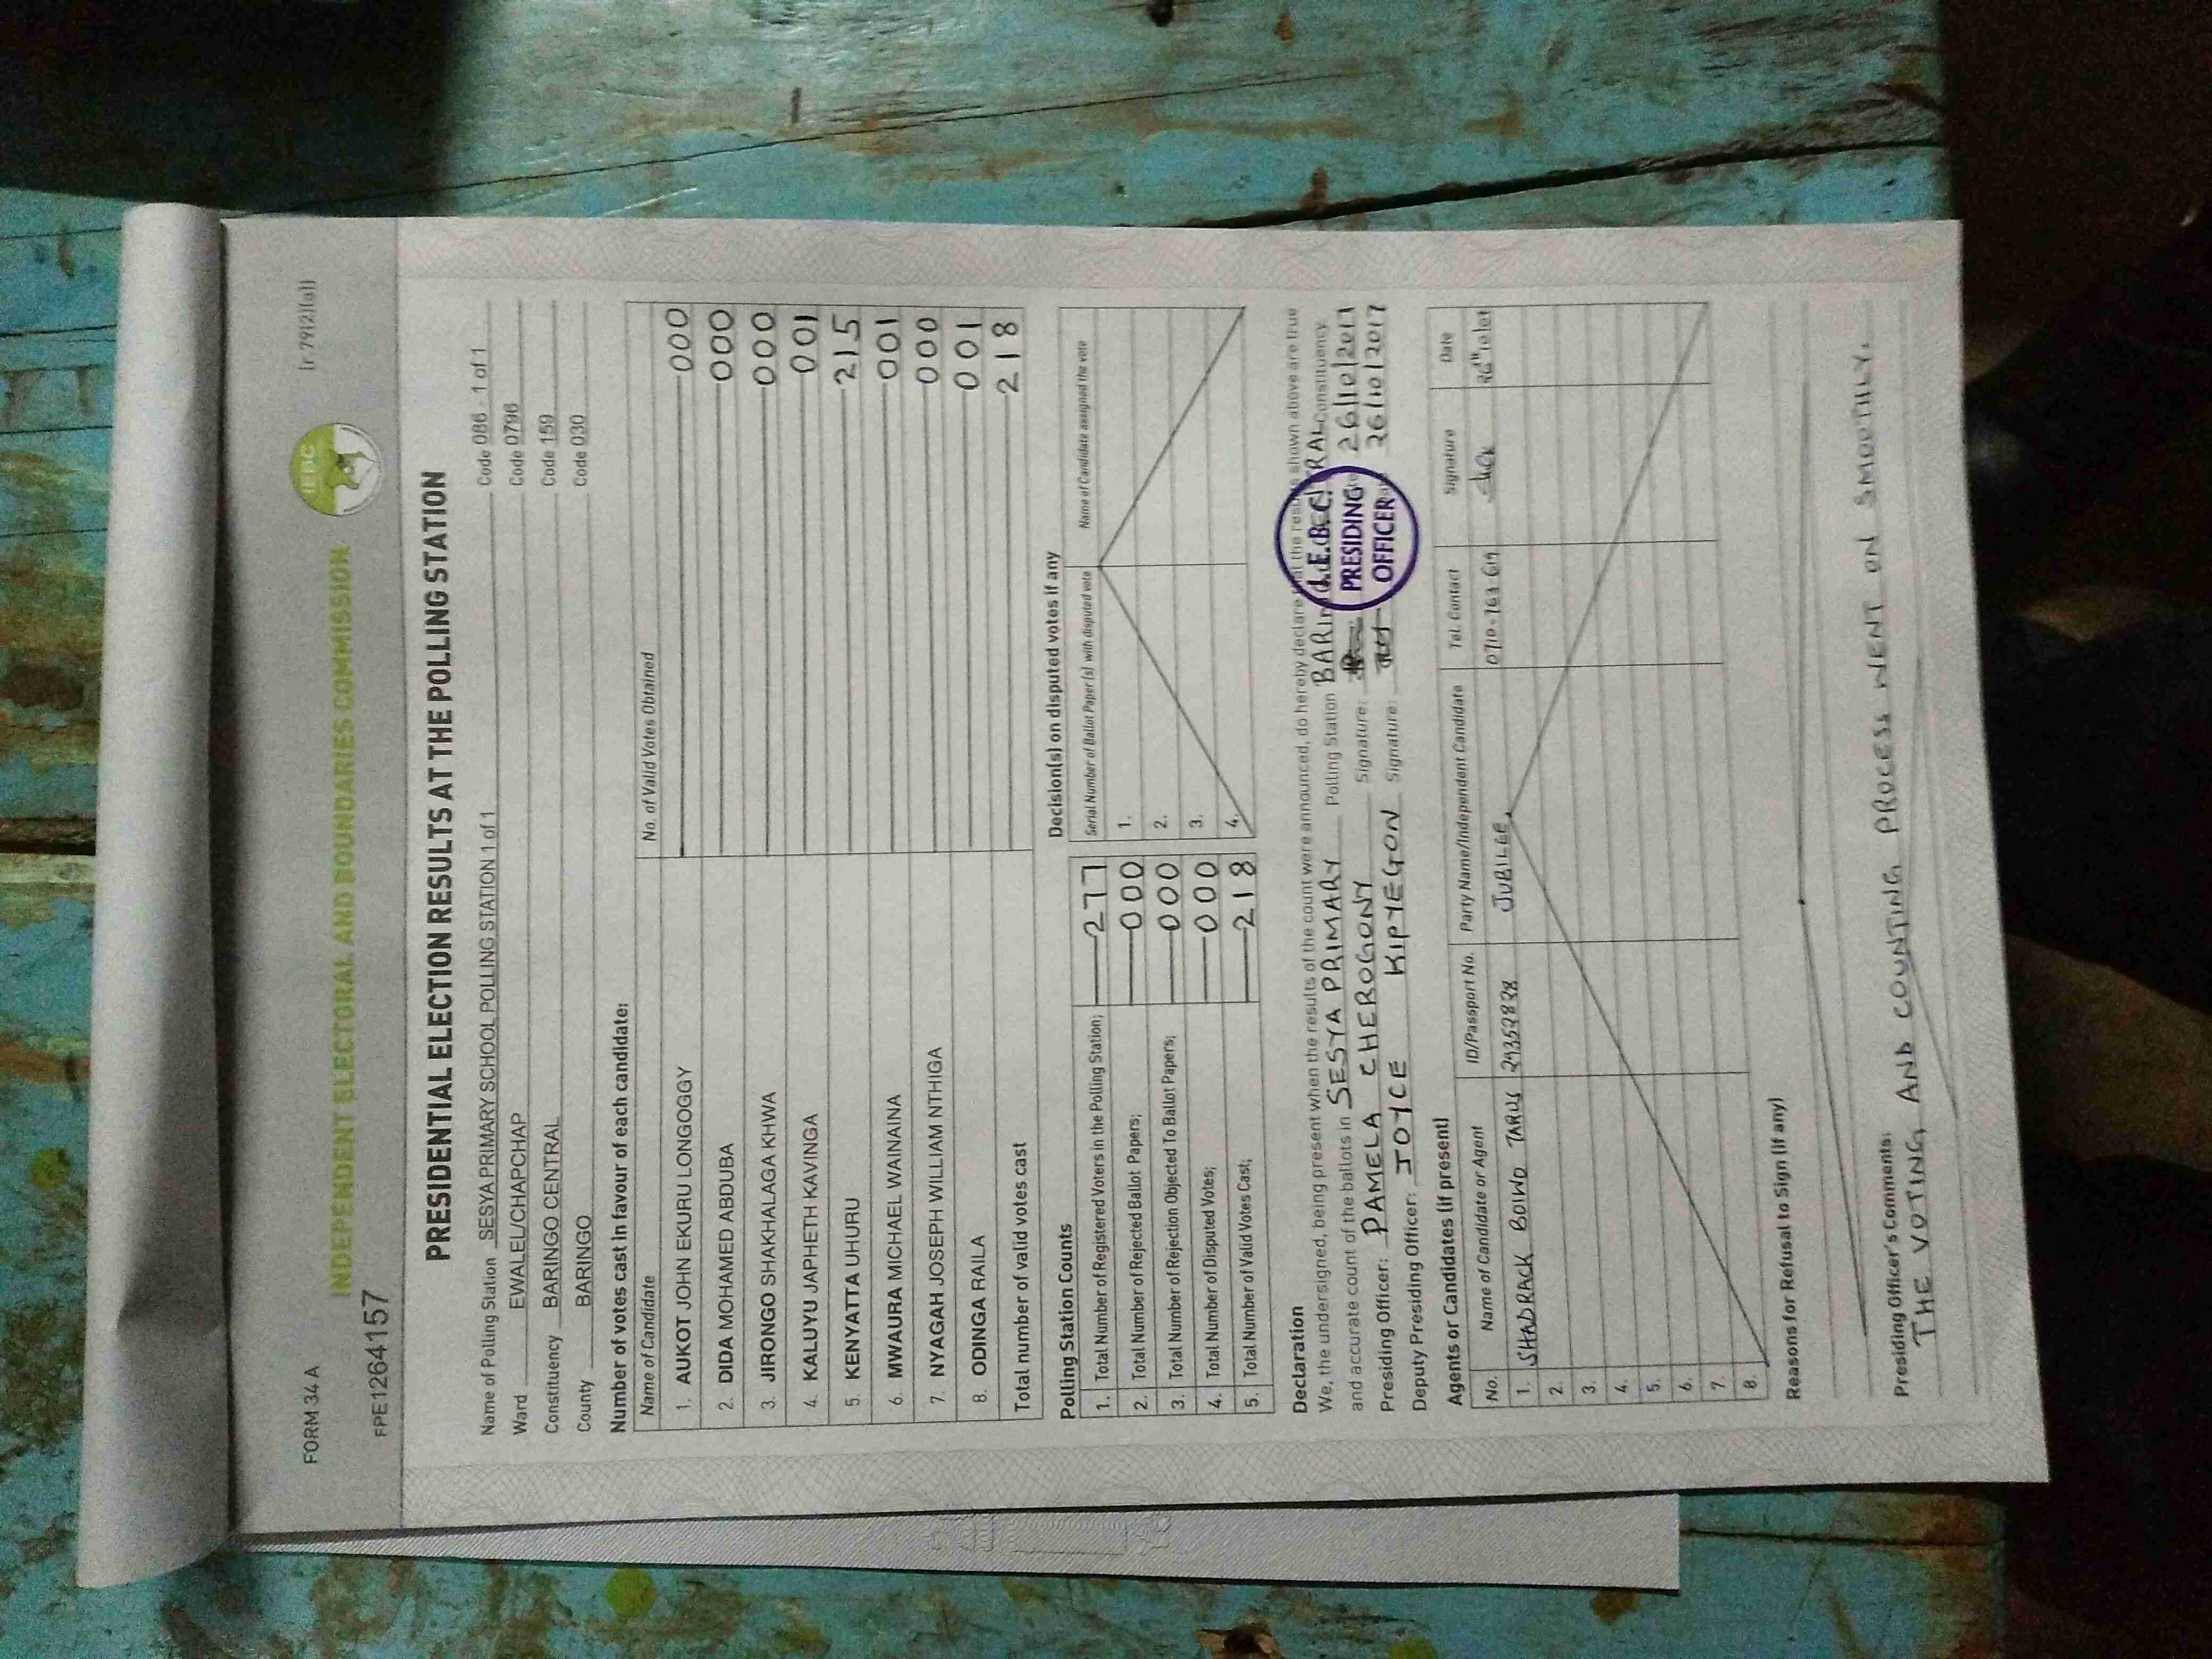 FORM 34 A
[r 79(2)(a)]
IEBC
INDEPENDENT ELECTORAL AND BOUNDARIES COMMISSION
FPE1264157
PRESIDENTIAL ELECTION RESULTS AT THE POLLING STATION
Name of Polling Station SESYA PRIMARY SCHOOL POLLING STATION 1 of 1 Code 086 1 of 1
Ward EWALEL/CHAPCHAP Code 0796
Constituency BARINGO CENTRAL Code 159
County BARINGO Code 030
Number of votes cast in favour of each candidate:
Name of Candidate No. of Valid Votes Obtained
1. AUKOT JOHN EKURU LONGOGGY 000
2. DIDA MOHAMED ABDUBA 000
3. JIRONGO SHAKHALAGA KHWA 000
4. KALUYU JAPHETH KAVINGA 001
5. KENYATTA UHURU 215
6. MWAURA MICHAEL WAINAINA 001
7. NYAGAH JOSEPH WILLIAM NTHIGA 000
8. ODINGA RAILA 001
Total number of valid votes cast 218
Polling Station Counts
1. Total Number of Registered Voters in the Polling Station; 277
2. Total Number of Rejected Ballot Papers; 000
3. Total Number of Rejection Objected To Ballot Papers; 000
4. Total Number of Disputed Votes; 000
5. Total Number of Valid Votes Cast; 218
Decision(s) on disputed votes if any
Serial Number of Ballot Paper (s) with disputed vote Name of Candidate assigned the vote
1.
2.
3.
4.
Declaration
We, the undersigned, being present when the results of the count were announced, do hereby declare that the results shown above are true
and accurate count of the ballots in SESYA PRIMARY Polling Station Constituency.
Presiding Officer: PAMELA CHEROGONY Signature: 26/10/2017
Deputy Presiding Officer: JOYCE KIPYEGON Signature: 26/10/2017
I.E.B.C.
PRESIDING
OFFICER
Agents or Candidates (if present)
No. Name of Candidate or Agent ID/Passport No. Party Name/Independent Candidate Tel. Contact Signature Date
1. SHADRACK BOIWO TARUS JUBILEE
2.
3.
4.
5.
6.
7.
8.
Reasons for Refusal to Sign (if any)
Presiding Officer's Comments:
THE VOTING AND COUNTING PROCESS WENT ON SMOOTHLY.